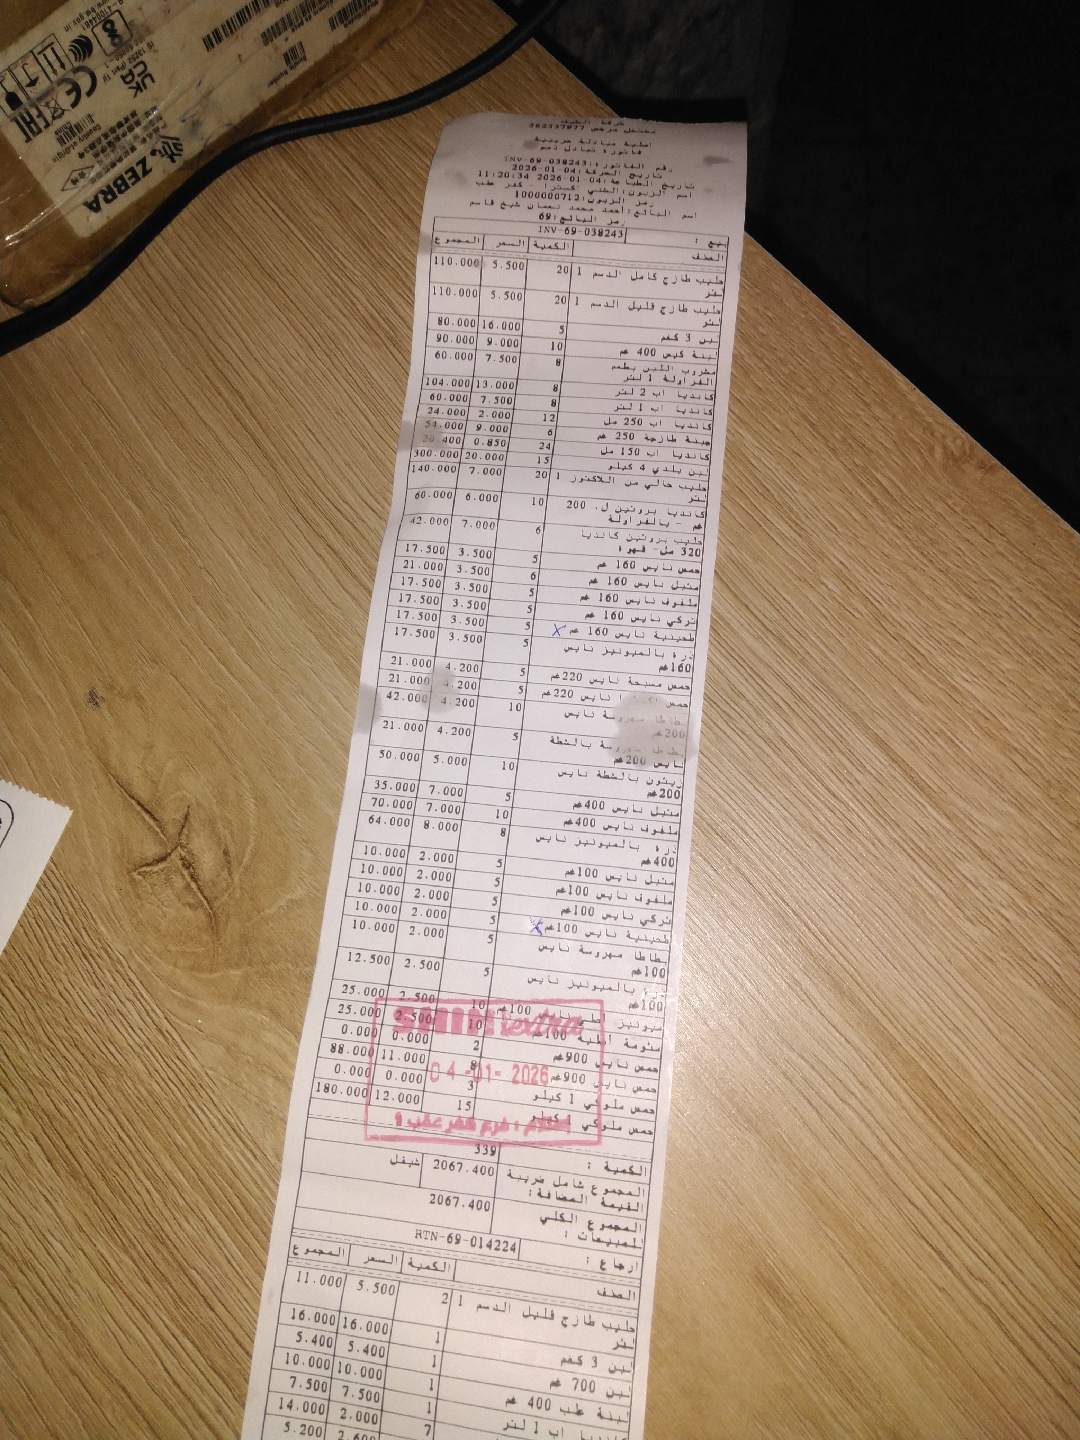 ZEBRA
UK CA
CE
Country of Origin:
مشتغل مرخص 562337977
فاتورة تبادل دسم
رقم الفاتورة: INV-69-038243
تاريخ الحركة: 2026-01-04
تاريخ الطباعة: 2026-01-04 11:20:34
اسم الزبون: الطني اكسترا - كفر عقب
رمز الزبون: 1000000712
اسم البائع: أحمد محمد نعمان شيخ قاسم
رمز البائع: 69
بيع : INV-69-038243
الصنف الكمية السعر المجموع
حليب طازج كامل الدسم 1 لتر 20 5.500 110.000
حليب طازج قليل الدسم 1 لتر 20 5.500 110.000
لبن 3 كغم 5 16.000 80.000
لبنة كيس 400 غم 10 9.000 90.000
مشروب اللبن بطعم الفراولة 1 لتر 8 7.500 60.000
كانديا اب 2 لتر 8 13.000 104.000
كانديا اب 1 لتر 8 7.500 60.000
كانديا اب 250 مل 12 2.000 24.000
جبنة طازجة 250 غم 6 9.000 54.000
كانديا اب 150 مل 24 0.850 20.400
لبن بلدي 4 كيلو 15 20.000 300.000
حليب خالي من اللاكتوز 1 لتر 20 7.000 140.000
كانديا بروتين ل. 200 غم - بالفراولة 10 6.000 60.000
حليب بروتين كانديا 320 مل- قهوة 6 7.000 42.000
حمص نايس 160 غم 5 3.500 17.500
متبل نايس 160 غم 6 3.500 21.000
ملفوف نايس 160 غم 5 3.500 17.500
تركي نايس 160 غم 5 3.500 17.500
طحينية نايس 160 غم 5 3.500 17.500
ذرة بالميونيز نايس 160غم 5 3.500 17.500
حمص مسبحة نايس 220غم 5 4.200 21.000
حمص نايس 220غم 5 4.200 21.000
بطاطا مهروسة نايس 200غم 10 4.200 42.000
بطاطا مهروسة بالشطة نايس 200غم 5 4.200 21.000
زيتون بالشطة نايس 200غم 10 5.000 50.000
متبل نايس 400غم 5 7.000 35.000
ملفوف نايس 400غم 10 7.000 70.000
ذرة بالميونيز نايس 400غم 8 8.000 64.000
متبل نايس 100غم 5 2.000 10.000
ملفوف نايس 100غم 5 2.000 10.000
تركي نايس 100غم 5 2.000 10.000
طحينية نايس 100غم 5 2.000 10.000
بطاطا مهروسة نايس 100غم 5 2.000 10.000
ذرة بالميونيز نايس 100غم 5 2.500 12.500
ميونيز نايس 100غم 10 2.500 25.000
مثومة 100غم 10 2.500 25.000
حمص نايس 900غم 2 0.000 0.000
حمص نايس 900غم 8 11.000 88.000
حمص ملوكي 1 كيلو 3 0.000 0.000
حمص ملوكي 1 كيلو 15 12.000 180.000
extra
04-01-2026
الكمية : 339
المجموع شامل ضريبة القيمة المضافة: 2067.400 شيقل
المجموع الكلي للمبيعات : 2067.400
ارجاع : RTN-69-014224
الصنف الكمية السعر المجموع
حليب طازج قليل الدسم 1 لتر 2 5.500 11.000
لبن 3 كغم 1 16.000 16.000
لبن 700 غم 1 5.400 5.400
لبنة علب 400 غم 1 10.000 10.000
كانديا اب 1 لتر 1 7.500 7.500
7 2.000 14.000
2.600 5.200